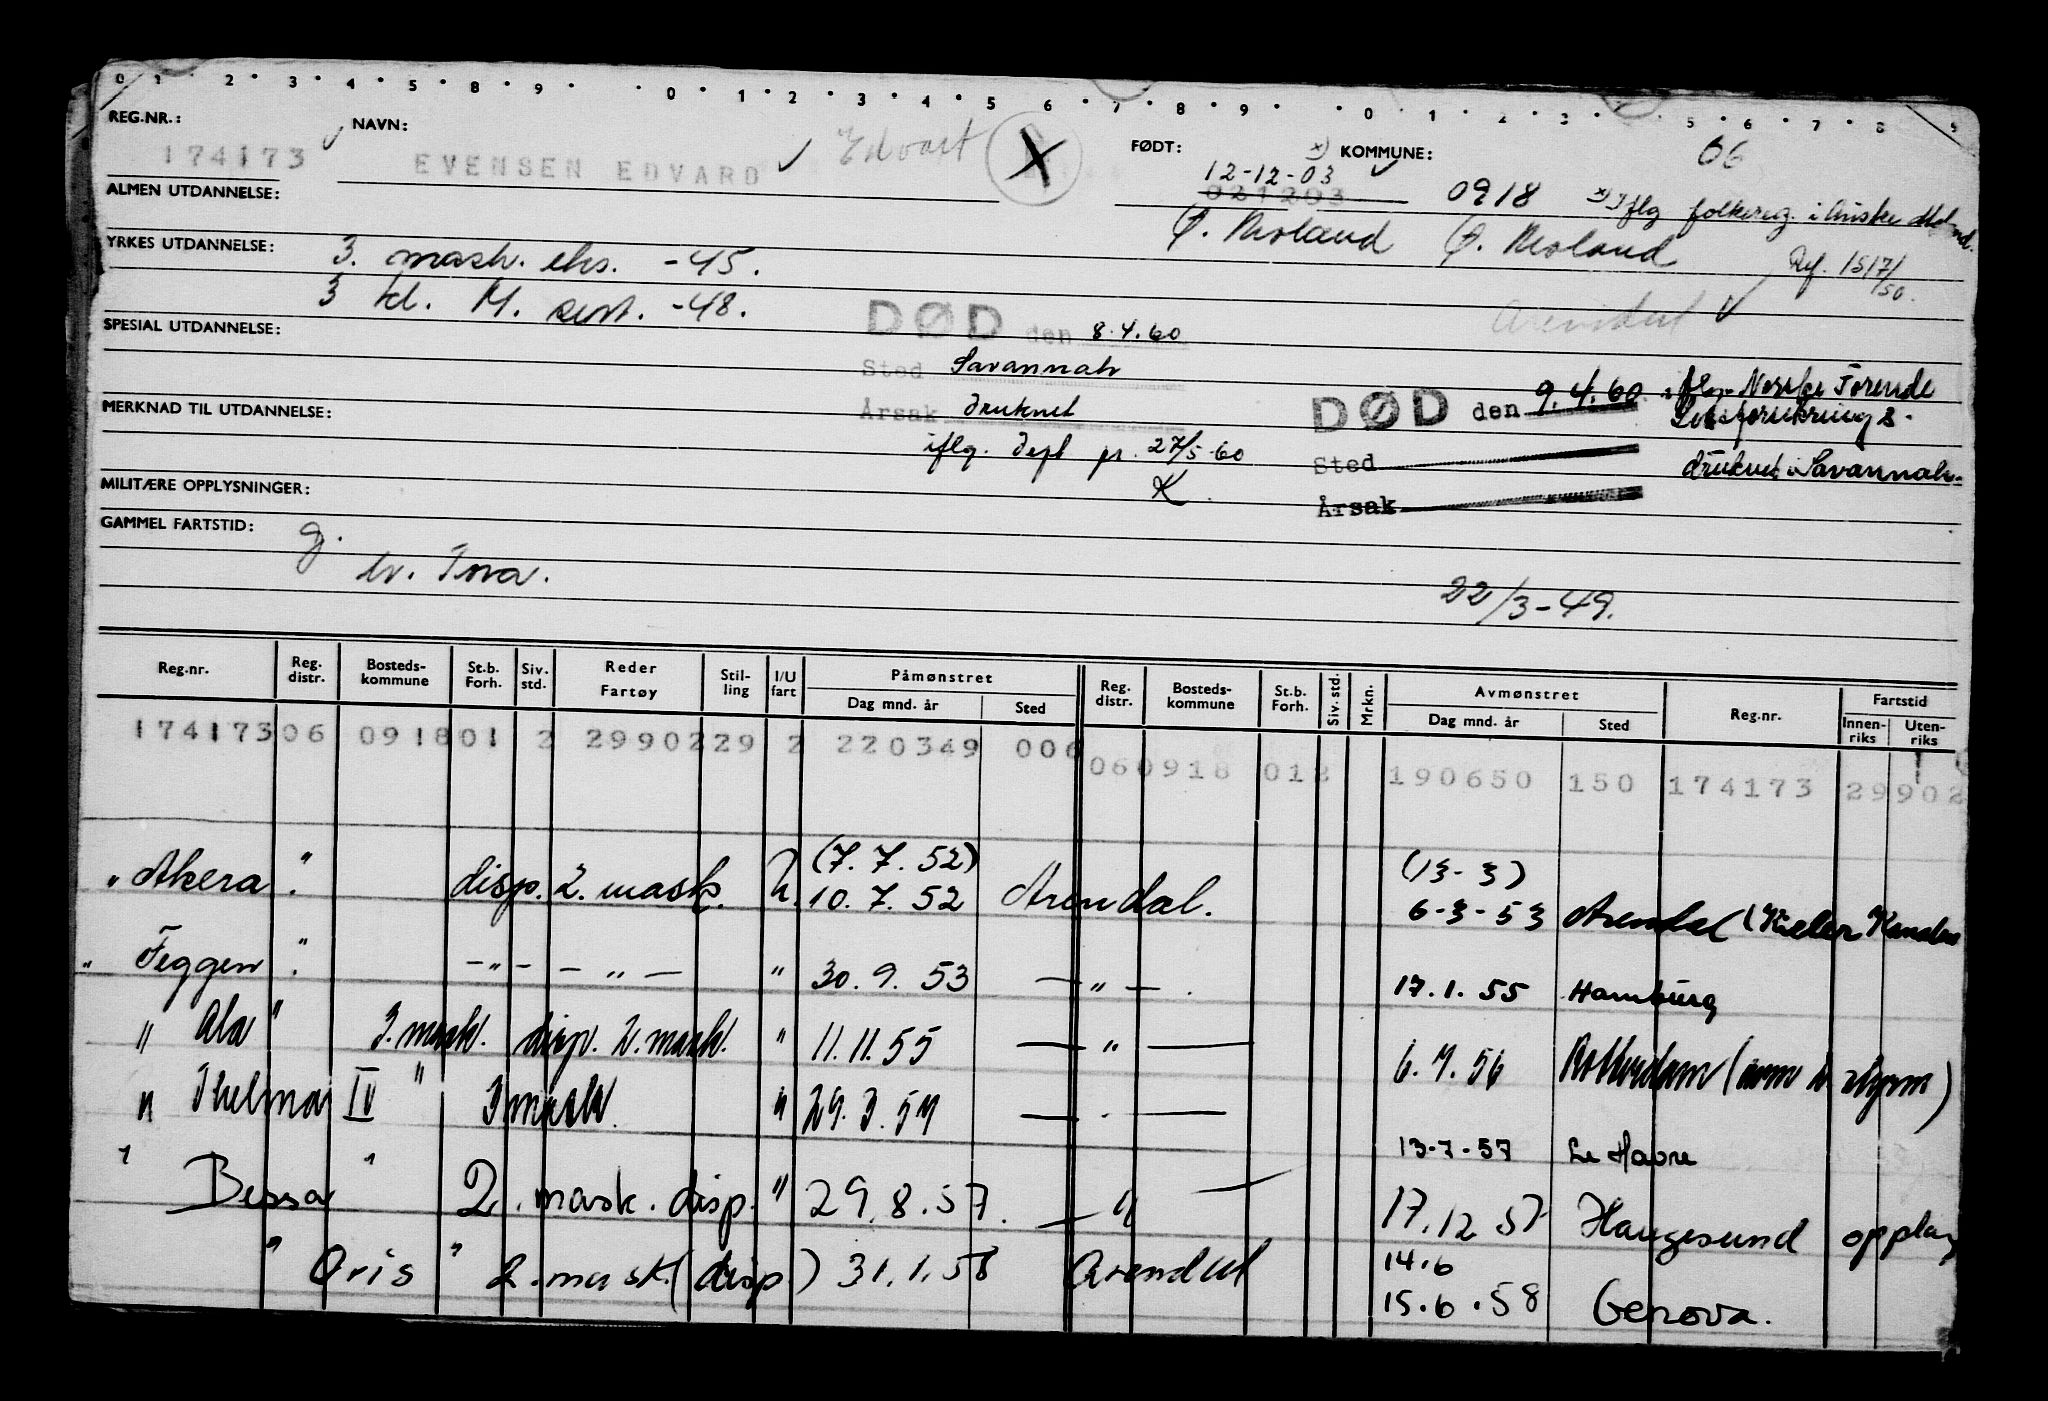 0 1 2 3 4 5 8 9 0 1 2 3 4 5 6 7 8 9 0 1 2 3 5 6 7 8 9
REG.NR.: NAVN: FØDT: KOMMUNE: 06
174173 EVENSEN EDVARD Edvart X 12-12-03
021203 0918 x) Iflg folkereg. i Austre
ALMEN UTDANNELSE: Ø. Moland Ø. Moland
YRKES UTDANNELSE: 3. mask. eks. -45. Ref. 1517/50.
3 kl. M. sert. -48. Arendal
SPESIAL UTDANNELSE: DØD den 8.4.60
Sted Savannah
Årsak druknet
iflg. dept pr. 27/5-60
K
DØD den 9.4.60 iflg. Norske Forende
Livsforsikring s.
Sted druknet i Savannah.
Årsak
MERKNAD TIL UTDANNELSE:
MILITÆRE OPPLYSNINGER:
GAMMEL FARTSTID: g.
hv. Tova. 22/3-49.
Reg.nr. Reg. distr. Bosteds-kommune St.b. Forh. Siv. std. Reder Fartøy Stil-ling I/U fart Påmønstret Dag mnd. år Sted Reg. distr. Bosteds-kommune St.b. Forh. Siv. std. Mrkn. Avmønstret Dag mnd. år Sted Reg.nr. Fartstid Innen-riks Uten-riks
174173 06 0918 01 2 29902 29 2 220349 006 06 0918 01 2 190650 150 174173 29902
" Akera " disp. 2. mask. U. (7.7.52) 10.7.52 Arendal. (13-3) 6-3-53 Arendal (Kieler Kanalen
" Feggen " -"- -"- " 30.9.53 -"-. 17.1.55 Hamburg
" Ala " 3. mask. disp. 2. mask. " 11.11.55 -"- 6.7.56 Rotterdam
" Thelma IV " 3 mask. " 29.3.57 -"- 13-7-57 Le Havre
" Bessa " 2. mask. disp. " 29.8.57. -"- 17.12 57 Haugesund opplag
" Oris " 2. mask. (disp.) 31.1.58 Arendal 14.6 15.6.58 Genova.